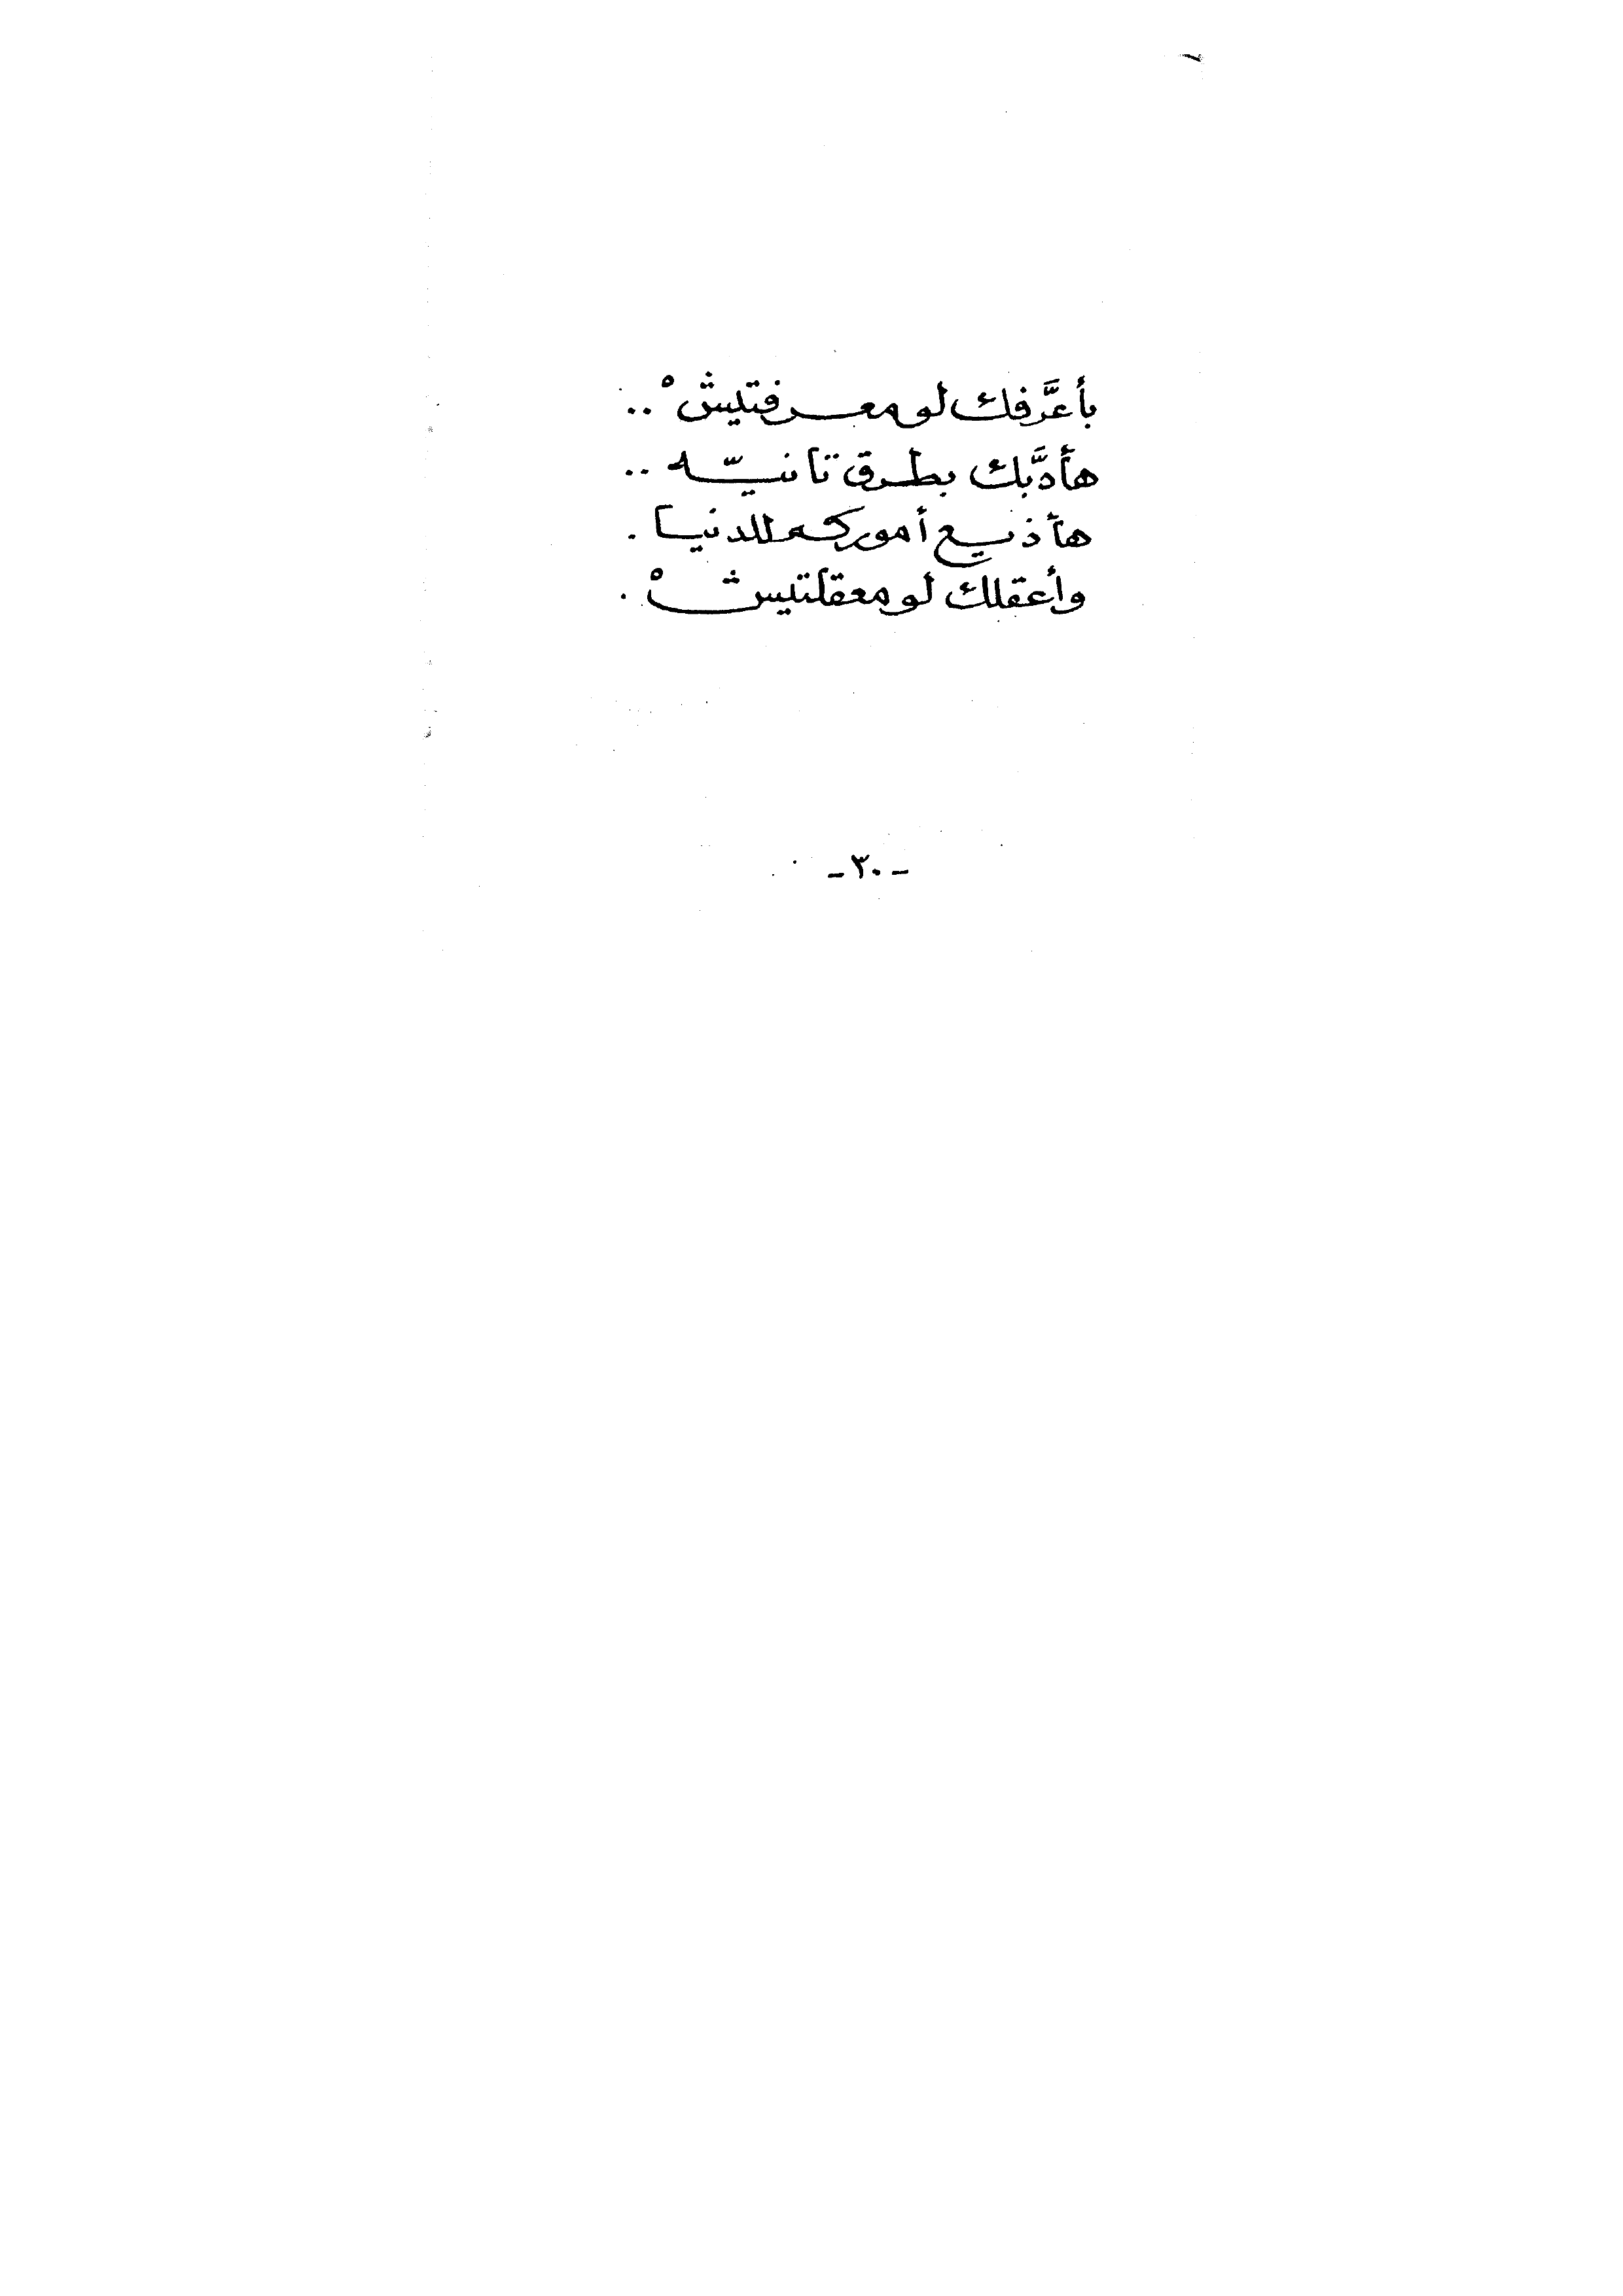 بأعرَّفك لو معرفتيشْ ..
هأدَّبك بطرق تانيّه ..
هأذيع أموركم للدنيا .
وأعقلك لو معقلتيشْ .
- ٣٠ -